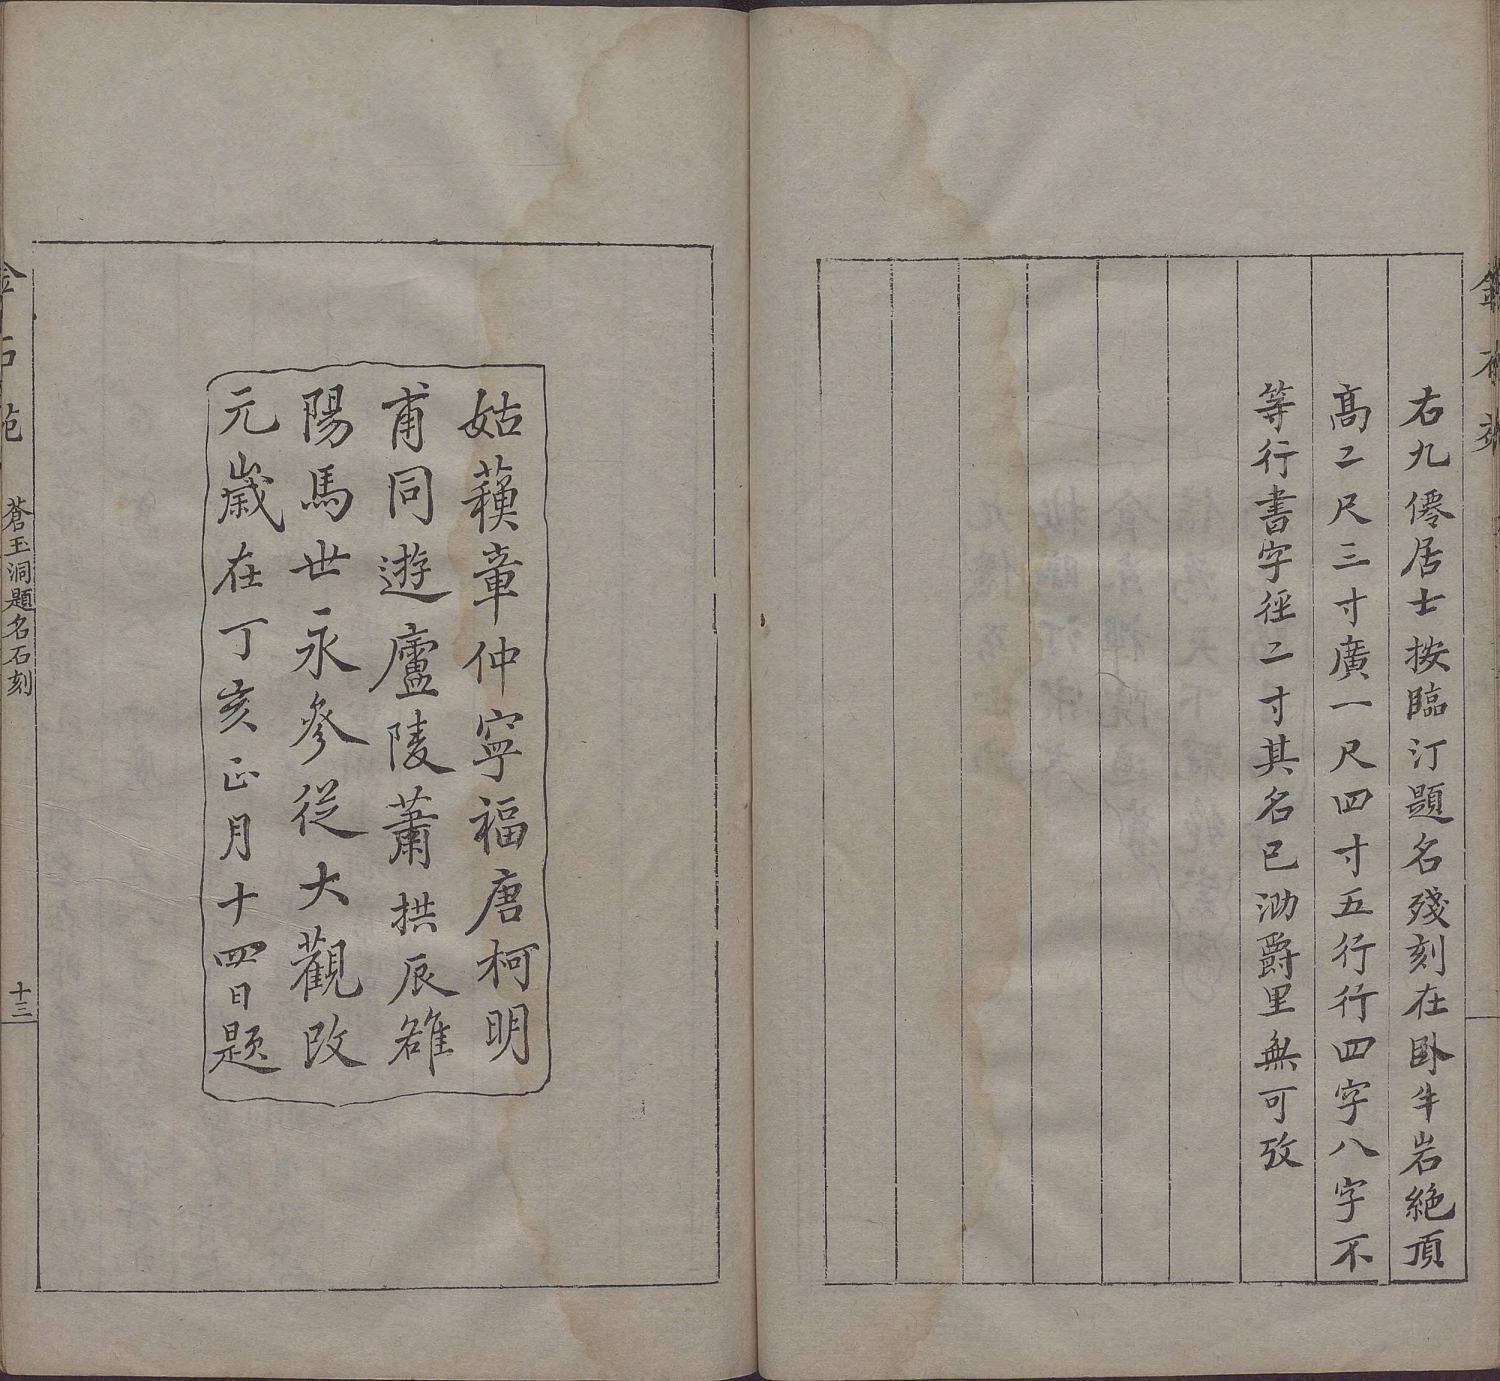 右九僊居士按臨汀題名殘刻在卧牛岩絶頂
高二尺三寸廣一尺四寸五行行四字八字不
等行書字徑二寸其名已泐爵里無可攷
姑蘓章仲寧福唐柯明
甫同遊廬陵蕭拱辰雒
陽馬世永參從大觀改
元歲在丁亥正月十四日題
金石苑
蒼玉洞題名石刻
十三